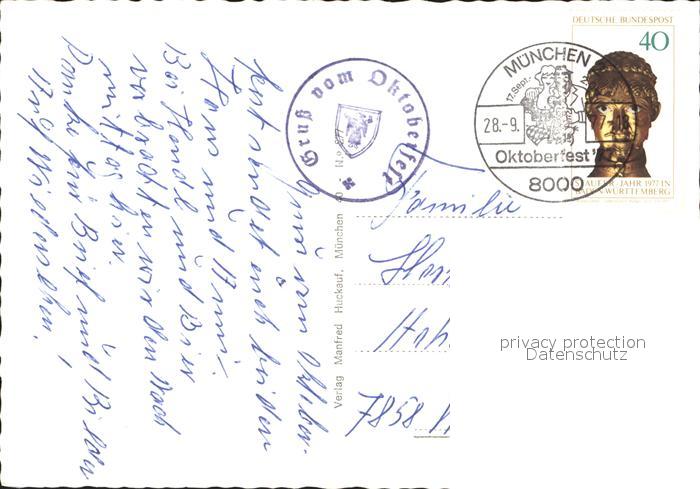 Gruß vom Oktober-
fest sendet euch beiden
Hans und
Bei Hendel und Bier
verbrachten wir den Nach
mittag hier.
Danke für Brief und Bilder
Wiedersehen!
Gruß vom Oktoberfest
Verlag Manfred Huckauf, München
MÜNCHEN
17. Sept.-
28.-9.
Oktoberfest
8000
DEUTSCHE BUNDESPOST
40
STAUFER-JAHR 1977 IN
BADEN-WÜRTTEMBERG
Familie
7858
privacy protection
Datenschutz